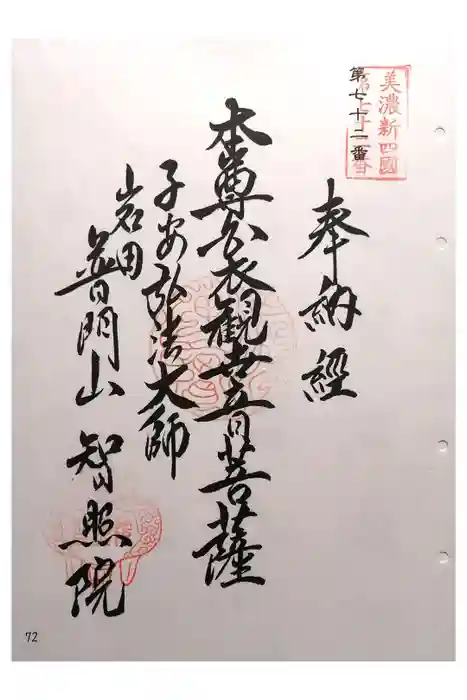 美濃新四國
第七十二番
奉納經
本尊公衣観世音菩薩
子安弘法大師
岩田
普門山 智照院
72